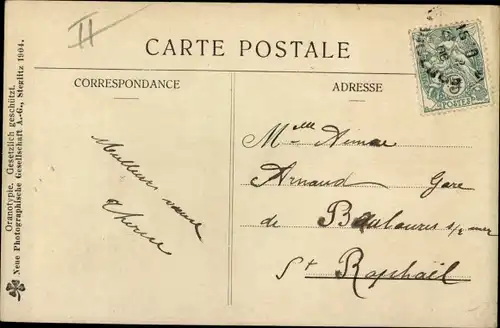 II
CARTE POSTALE
CORRESPONDANCE
ADRESSE
Meilleurs
Mlle Aimée
Arnaud Gare
de Boulouris s/ mer
St Raphaël
POSTES
Oranotypie. Gesetzlich geschützt.
Neue Photographische Gesellschaft A.-G., Steglitz 1904.